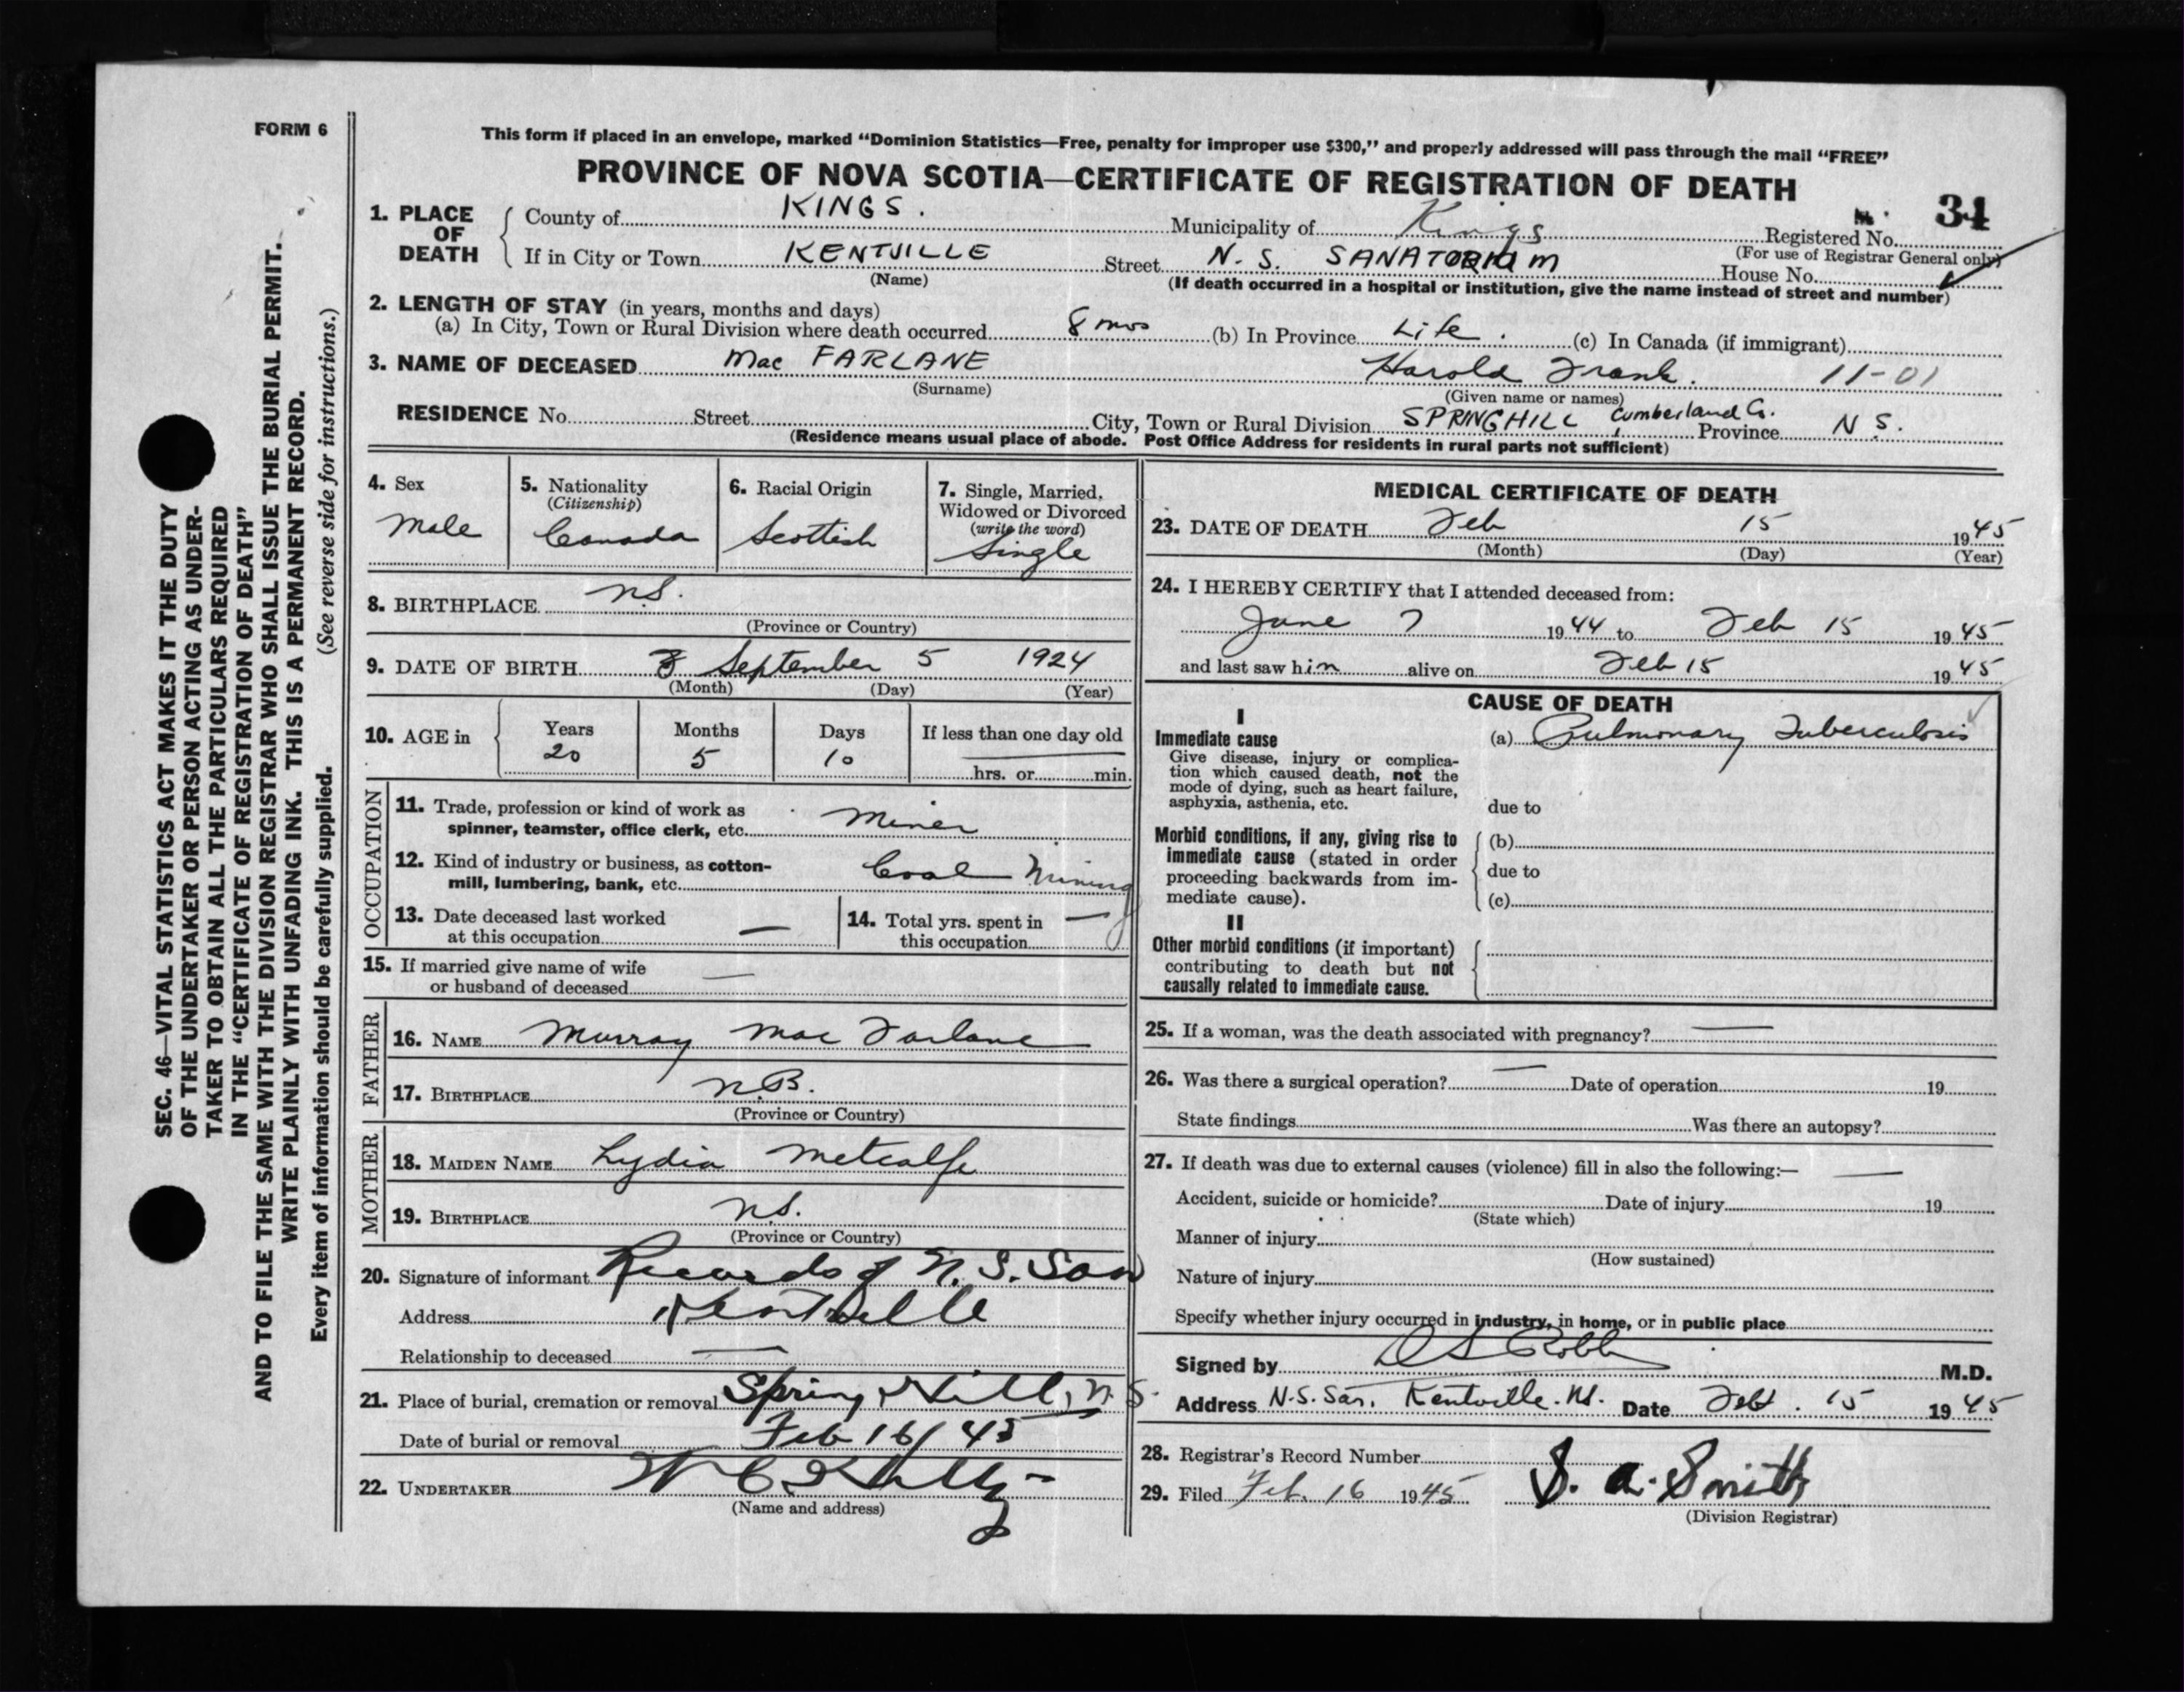 FORM 6
SEC. 46—VITAL STATISTICS ACT MAKES IT THE DUTY
OF THE UNDERTAKER OR PERSON ACTING AS UNDER-
TAKER TO OBTAIN ALL THE PARTICULARS REQUIRED
IN THE "CERTIFICATE OF REGISTRATION OF DEATH"
AND TO FILE THE SAME WITH THE DIVISION REGISTRAR WHO SHALL ISSUE THE BURIAL PERMIT.
WRITE PLAINLY WITH UNFADING INK. THIS IS A PERMANENT RECORD.
Every item of information should be carefully supplied. (See reverse side for instructions.)
This form if placed in an envelope, marked "Dominion Statistics—Free, penalty for improper use $300," and properly addressed will pass through the mail "FREE"
PROVINCE OF NOVA SCOTIA—CERTIFICATE OF REGISTRATION OF DEATH
34
1. PLACE OF DEATH
County of KINGS. Municipality of Kings Registered No.
(For use of Registrar General only)
If in City or Town KENTVILLE Street N. S. SANATORIUM House No.
(Name) (If death occurred in a hospital or institution, give the name instead of street and number)
2. LENGTH OF STAY (in years, months and days)
(a) In City, Town or Rural Division where death occurred 8 mos (b) In Province Life. (c) In Canada (if immigrant)
3. NAME OF DECEASED Mac FARLANE Harold Frank. 11-01
(Surname) (Given name or names)
RESIDENCE No. Street City, Town or Rural Division SPRINGHILL, Cumberland Co. Province N S.
(Residence means usual place of abode. Post Office Address for residents in rural parts not sufficient)
4. Sex
Male
5. Nationality
(Citizenship)
Canada
6. Racial Origin
Scottish
7. Single, Married,
Widowed or Divorced
(write the word)
Single
8. BIRTHPLACE N.S.
(Province or Country)
9. DATE OF BIRTH September 5 1924
(Month) (Day) (Year)
10. AGE in
Years Months Days If less than one day old
20 5 10
hrs. or min.
OCCUPATION
11. Trade, profession or kind of work as
spinner, teamster, office clerk, etc. Miner
12. Kind of industry or business, as cotton-
mill, lumbering, bank, etc. Coal Mining
13. Date deceased last worked
at this occupation —
14. Total yrs. spent in
this occupation —
15. If married give name of wife
or husband of deceased —
FATHER
16. NAME Murray Mac Farlane
17. BIRTHPLACE N.B.
(Province or Country)
MOTHER
18. MAIDEN NAME Lydia Metcalfe
19. BIRTHPLACE N.S.
(Province or Country)
20. Signature of informant Records of N. S. San
Address Kentville
Relationship to deceased —
21. Place of burial, cremation or removal Spring Hill, N.S.
Date of burial or removal Feb 16/45
22. UNDERTAKER
(Name and address)
MEDICAL CERTIFICATE OF DEATH
23. DATE OF DEATH Feb 15 1945
(Month) (Day) (Year)
24. I HEREBY CERTIFY that I attended deceased from:
June 7 1944 to Feb 15 1945
and last saw him alive on Feb 15 1945
CAUSE OF DEATH
I
Immediate cause
Give disease, injury or complica-
tion which caused death, not the
mode of dying, such as heart failure,
asphyxia, asthenia, etc.
(a) Pulmonary Tuberculosis
due to
Morbid conditions, if any, giving rise to
immediate cause (stated in order
proceeding backwards from im-
mediate cause).
(b)
due to
(c)
II
Other morbid conditions (if important)
contributing to death but not
causally related to immediate cause.
25. If a woman, was the death associated with pregnancy? —
26. Was there a surgical operation? — Date of operation 19
State findings Was there an autopsy?
27. If death was due to external causes (violence) fill in also the following:— —
Accident, suicide or homicide? Date of injury 19
(State which)
Manner of injury
(How sustained)
Nature of injury
Specify whether injury occurred in industry, in home, or in public place
Signed by M.D.
Address N.S. San. Kentville. N.S. Date Feb. 15 1945
28. Registrar's Record Number
29. Filed Feb. 16 1945 S. A. Smith
(Division Registrar)